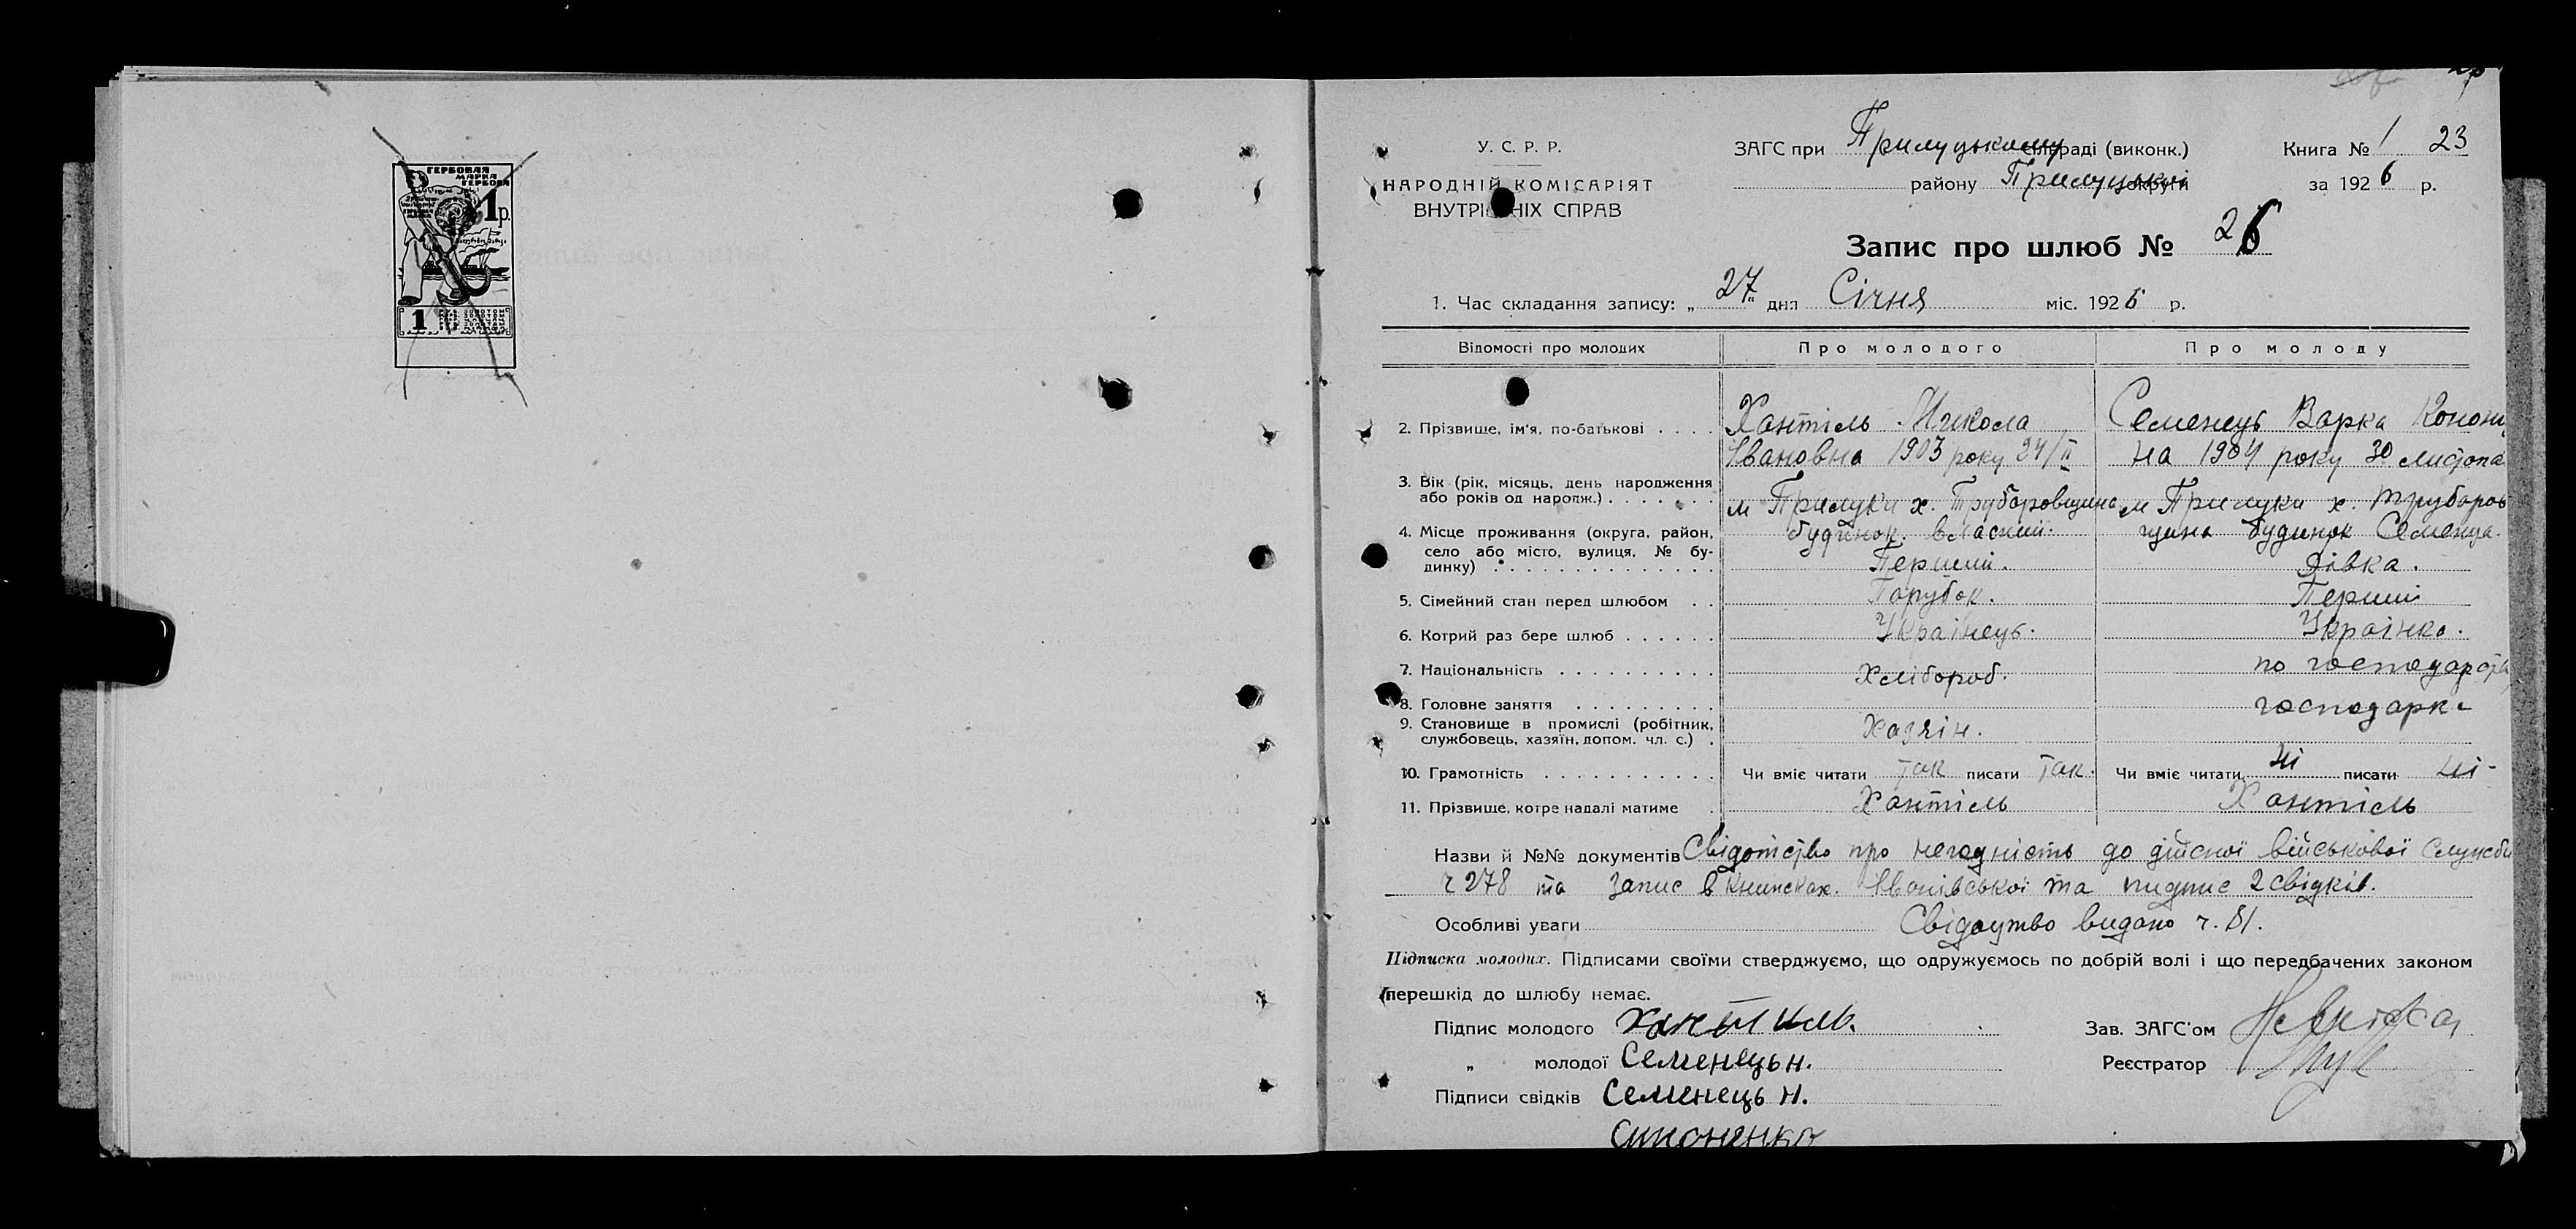 ГЕРБОВАЯ
МАРКА
ГЕРБОВА
1 р.
1
У. С. Р. Р.
НАРОДНІЙ КОМІСАРІЯТ
ВНУТРІШНІХ СПРАВ
ЗАГС при Прилуцькому сільраді (виконк.)
району Прилуцької округи
Книга № 1 23
за 1926 р.
Запис про шлюб № 26
1. Час складання запису: „27" дня Січня міс. 1926 р.
Відомості про молодих Про молодого Про молоду
2. Прізвище, ім'я, по-батькові . . . . Хантіль Микола Семенець Варка Конони
Івановна 1903 року 24/II на 1904 року 30 листопа
3. Вік (рік, місяць, день народження
або років од народж.) . . . . . . . м Прилуки х. Труборовщина м Прилуки х. Труборов
4. Місце проживання (округа, район, будинок власний. щина будинок Семенця.
село або місто, вулиця, № бу-
динку) . . . . . . . . . . . . . . Перший. Дівка.
5. Сімейний стан перед шлюбом . . Парубок. Перший
6. Котрий раз бере шлюб . . . . . . Українець. Українка.
7. Національність . . . . . . . . . . Хлібороб. по господарств
8. Головне заняття . . . . . . . . . господарка
9. Становище в промислі (робітник, Хазяін.
службовець, хазяїн, допом. чл. с.) .
10. Грамотність . . . . . . . . . . . Чи вміє читати так писати так. Чи вміє читати ні писати ні-
11. Прізвище, котре надалі матиме Хантіль Хантіль
Назви й №№ документів Свідотство про негодність до дійсної військової служби
ч 278 та запис в книжках. Іванівської та підпис 2 свідків.
Особливі уваги Свідоцтво видано ч. 81.
Підписка молодих. Підписами своїми стверджуємо, що одружуємось по добрій волі і що передбачених законом
перешкід до шлюбу немає.
Підпис молодого Хантиль.
Зав. ЗАГС'ом
„ молодої Семенець н.
Реєстратор
Підписи свідків Семенець н.